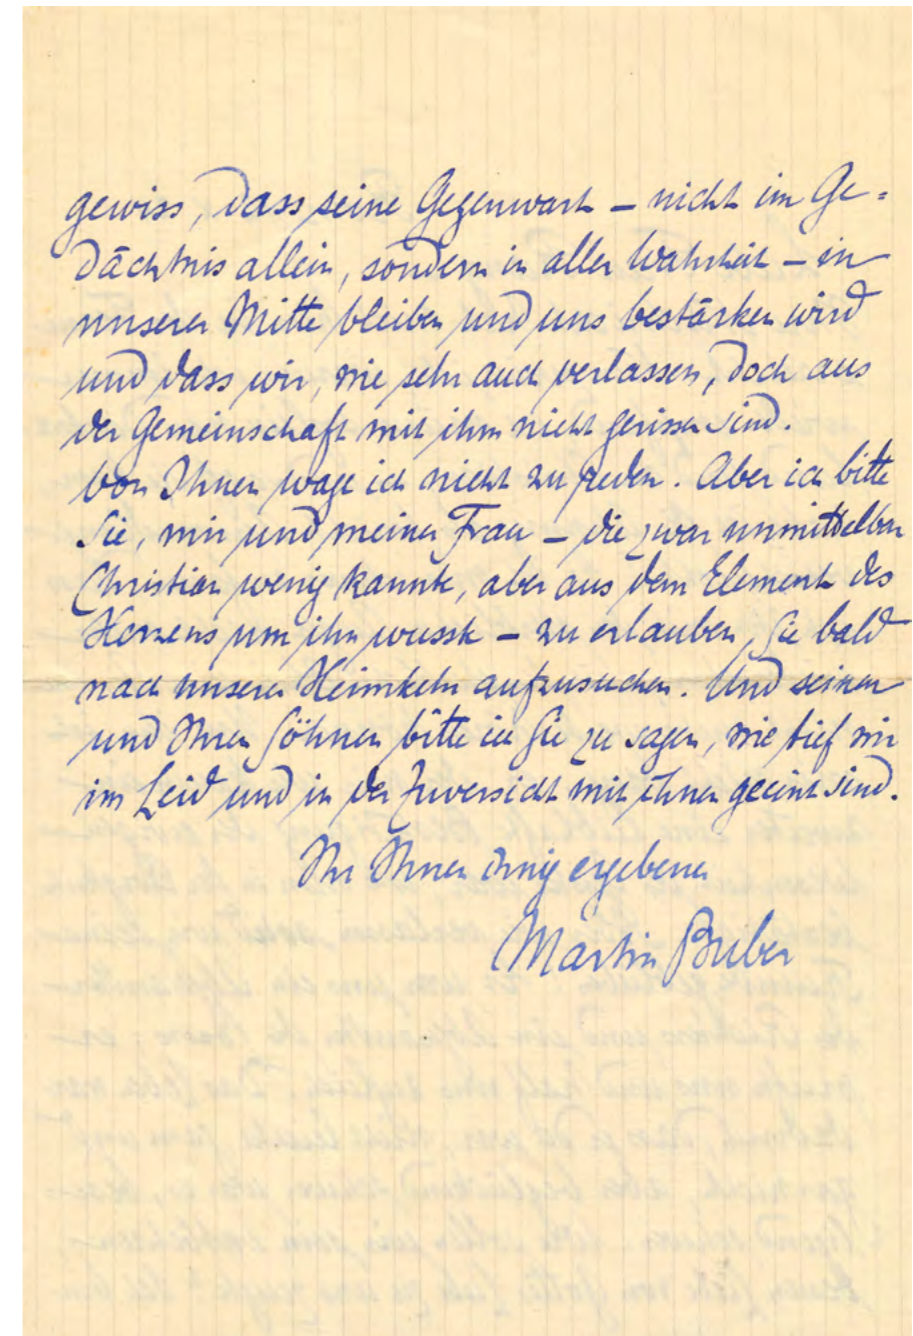 gewiss, dass seine Gegenwart – nicht im Ge=
dächtnis allein, sondern in aller Wahrheit – in
unserer Mitte bleiben und uns bestärken wird
und dass wir, wie sehr auch verlassen, doch aus
der Gemeinschaft mit ihm nicht gerissen sind.
Von Ihnen wage ich nicht zu reden. Aber ich bitte
Sie, mir und meiner Frau – die zwar unmittelbar
Christian wenig kannte, aber aus dem Element des
Herzens um ihn wusste – zu erlauben, Sie bald
nach unserer Heimkehr aufzusuchen. Und seinen
und Ihren Söhnen bitte ich Sie zu sagen, wie tief wir
im Leid und in der Zuversicht mit ihnen geeint sind.
Ihr Ihnen innig ergebener
Martin Buber